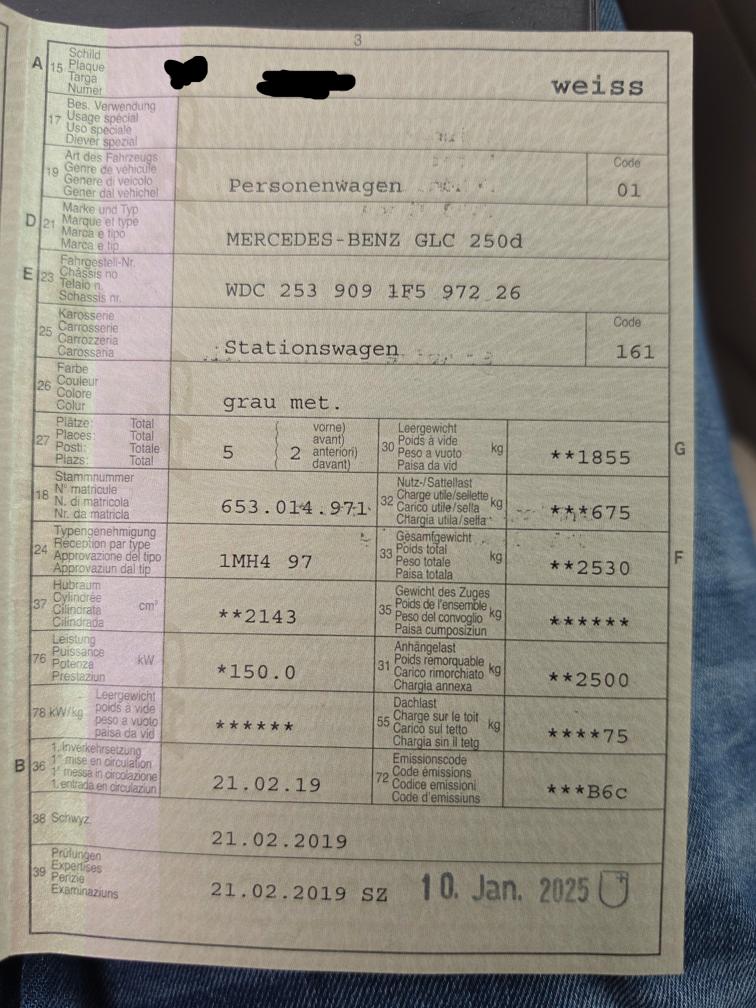 3
A 15 Schild
Plaque
Targa
Numer
weiss
17 Bes. Verwendung
Usage spécial
Uso speciale
Diever spezial
19 Art des Fahrzeugs
Genre de véhicule
Genere di veicolo
Gener dal vehichel
Personenwagen
Code
01
D 21 Marke und Typ
Marque et type
Marca e tipo
Marca e tip
MERCEDES-BENZ GLC 250d
E 23 Fahrgestell-Nr.
Châssis no
Telaio n.
Schassis nr.
WDC 253 909 1F5 972 26
25 Karosserie
Carrosserie
Carrozzeria
Carossaria
Stationswagen
Code
161
26 Farbe
Couleur
Colore
Colur
grau met.
27 Plätze: Total
Places: Total
Posti: Totale
Plazs: Total
5
2
vorne)
avant)
anteriori)
davant)
30 Leergewicht
Poids à vide
Peso a vuoto
Paisa da vid
kg
**1855
G
18 Stammnummer
N° matricule
N. di matricola
Nr. da matricla
653.014.971
32 Nutz-/Sattellast
Charge utile/sellette
Carico utile/sella
Chargia utila/sella
kg
***675
24 Typengenehmigung
Réception par type
Approvazione del tipo
Approvaziun dal tip
1MH4 97
33 Gesamtgewicht
Poids total
Peso totale
Paisa totala
kg
**2530
F
37 Hubraum
Cylindrée
Cilindrata
Cilindrada
cm³
**2143
35 Gewicht des Zuges
Poids de l'ensemble
Peso del convoglio
Paisa cumposiziun
kg
******
76 Leistung
Puissance
Potenza
Prestaziun
kW
*150.0
31 Anhängelast
Poids remorquable
Carico rimorchiato
Chargia annexa
kg
**2500
78 kW/kg
Leergewicht
poids à vide
peso a vuoto
paisa da vid
******
55 Dachlast
Charge sur le toit
Carico sul tetto
Chargia sin il tetg
kg
****75
B 36 1. Inverkehrsetzung
1re mise en circulation
1a messa in circolazione
1. entrada en circulaziun
21.02.19
72 Emissionscode
Code émissions
Codice emissioni
Code d'emissiuns
***B6c
38 Schwyz
21.02.2019
39 Prüfungen
Expertises
Perizie
Examinaziuns
21.02.2019 SZ
10. Jan. 2025